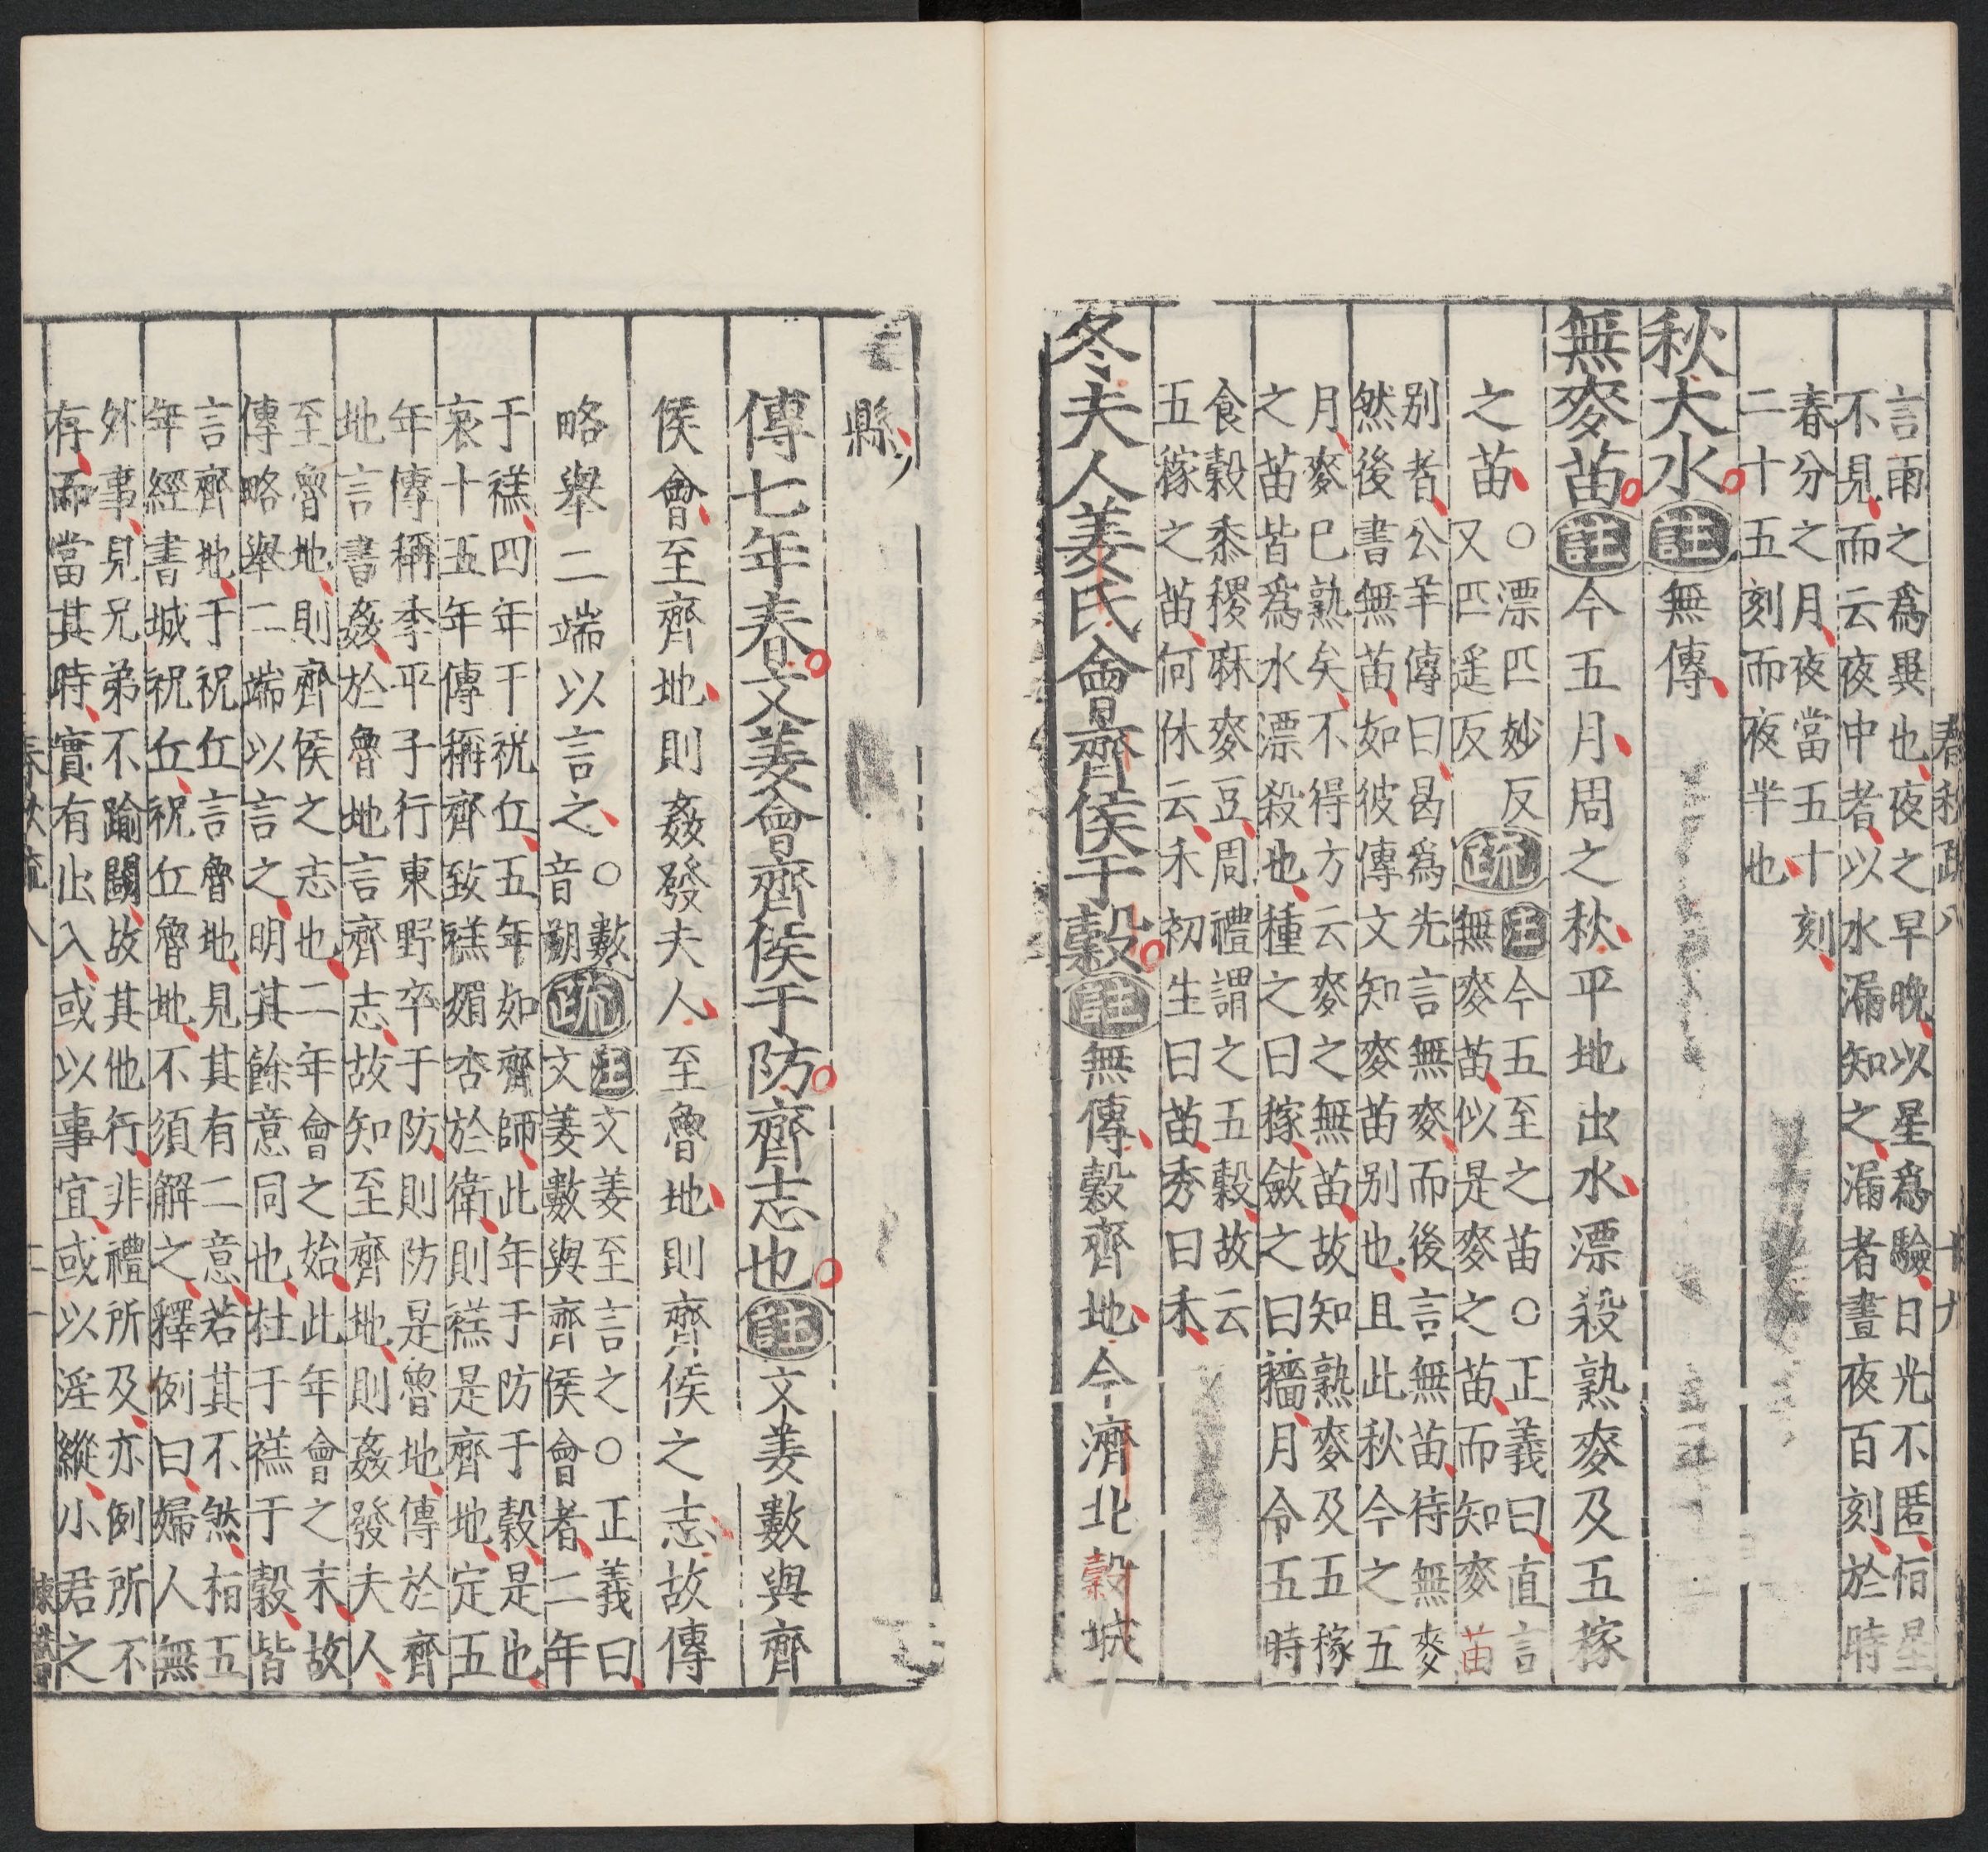 春秋疏八 十九
言雨之爲異也夜之早晚以星爲驗日光不匿恒星
不見而云夜中者以水漏知之漏者晝夜百刻於時
春分之月夜當五十刻
二十五刻而夜半也
秋大水註無傳
無麥苗註今五月周之秋平地出水漂殺熟麥及五稼
之苗
○漂匹妙反
又匹遥反
疏
註今五至之苗○正義曰直言
無麥苗似是麥之苗而知麥苗
别者公羊傳曰曷爲先言無麥而後言無苗待無麥
然後書無苗如彼傳文知麥苗别也且此秋今之五
月麥巳熟矣不得方云麥之無苗故知熟麥及五稼
之苗皆爲水漂殺也種之曰稼斂之曰穡月令五時
食穀黍稷麻麥豆周禮謂之五穀故云
五稼之苗何休云禾初生曰苗秀曰禾
冬夫人姜氏會齊侯于穀註無傳穀齊地今濟北穀城
縣
傳七年春文姜會齊侯于防齊志也註文姜數與齊
侯會至齊地則姦發夫人至魯地則齊侯之志故傳
略舉二端以言之
○數
音朔
疏
註文姜至言之○正義曰
文姜數與齊侯會者二年
于禚四年于祝丘五年如齊師此年于防于穀是也
哀十五年傳稱齊致禚媚杏於衛則禚是齊地定五
年傳稱季平子行東野卒于防則防是魯地傳於齊
地言書姦於魯地言齊志故知至齊地則姦發夫人
至魯地則齊侯之志也二年會之始此年會之末故
傳略舉二端以言之明其餘意同也杜于禚于穀皆
言齊地于祝丘言魯地見其有二意若其不然桓五
年經書城祝丘祝丘魯地不須解之釋例曰婦人無
外事見兄弟不踰閾故其他行非禮所及亦例所不
存而當其時實有出入或以事宜或以淫縱小君之
春秋疏八 二十